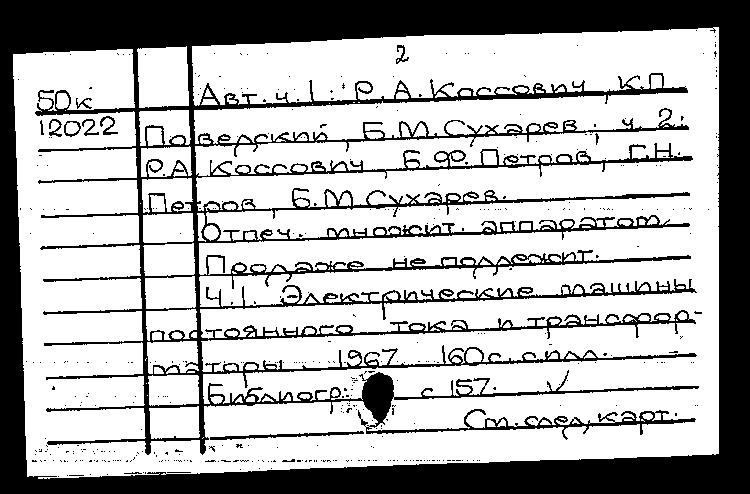 2
50к Авт. ч. 1: Р.А. Коссович, К.П.
12022 Поведский, Б.М. Сухарев; ч. 2:
Р.А. Коссович, Б.Ф. Петров, Г.Н.
Петров, Б.М Сухарев.
Отпеч. множит. аппаратом.
Продаже не подлежит.
Ч.1. Электрические машины
постоянного тока и трансфор-
маторы. 1967. 160 с. с илл.
Библиогр: с 157. √
См. след, карт.